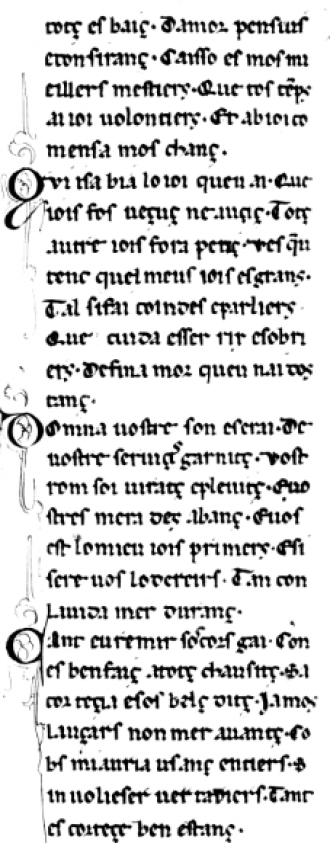 totç es baiç. Damor pensius
econsiranç. Caisso es mos mi
eillers mestiers. Que tos tēps
ai ioi uolontiers. Et abioi co
mensa mos chanç.
Qvi isa bia lo ioi queu .n. Que
iois fos ueçuç ne auçiç. Totç
autre iois fora petiç. ves qū
tenc quel meus iois es granç.
Tal si fai coindes eparliers
Que cuida esser ric esobri
ers. Defina mor queu nai dos
tanç.
Domna uostre son eserai. De
uostre seruiçs garnitç. vost
rom soi iuratç epleuitç. Euo
stres mera deç abanç. Euos
est lomieu iois primers. Esi
sere uos loderers. Tan con
Luida mer duranç.
Cant euremir socors gai. Con
es benfaiç atotç chausitç. Sa
cor teçia esos belç ditç. Jamos
Laugars non mer auantç. Co
bs miauria us anç entiers. S
in uolieser uer tadiers. Tant
es corteçç ben estanç.